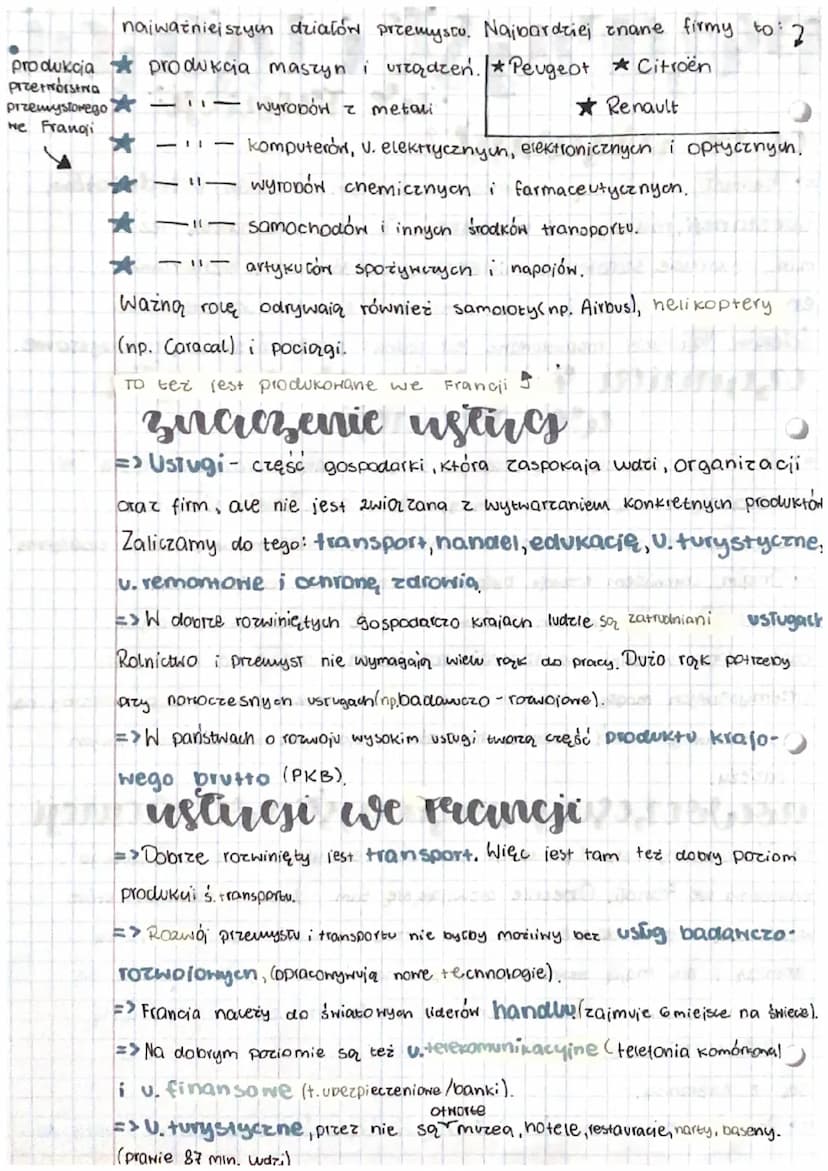 najważniejszych działów przemysłu. Najbardziej znane firmy to:
produkcja
przetwórstwa
przemysłowego
we Francji
★ produkcja maszyn i urządzeń.
★ Peugeot ★ Citroën
★ Renault
★ — " — wyrobów z metali
★ — " — komputerów, u. elektrycznych, elektronicznych i optycznych.
★ — " — wyrobów chemicznych i farmaceutycznych.
★ — " — samochodów i innych środków transportu.
★ — " — artykułów spożywczych i napojów.
Ważną rolę odrywają również samoloty(np. Airbus), helikoptery
(np. Caracal) i pociągi.
TO też jest produkowane we Francji
znaczenie usług
=> Usługi - część gospodarki, która zaspokaja ludzi, organizacji
oraz firm, ale nie jest związana z wytwarzaniem konkretnych produktów
Zaliczamy do tego: transport, handel, edukację, U. turystyczne,
u. remontowe i ochronę zdrowia.
=> W dobrze rozwiniętych gospodarczo krajach ludzie są zatrudniani usługach
Rolnictwo i przemysł nie wymagają wielu rąk do pracy. Dużo rąk potrzeby
przy nowoczesnych usługach(np.badawczo - rozwojowe).
=> W państwach o rozwoju wysokim usługi tworzą część produktu krajo-
wego brutto (PKB).
usługi we Francji
=> Dobrze rozwinięty jest transport. Więc jest tam też dobry poziom
produkcji ś. transportu.
=> Rozwój przemysłu i transportu nie byłby możliwy bez usług badawczo-
rozwojowych, (opracowywują nowe technologie).
=> Francja należy do światowych liderów handlu (zajmuje 6 miejsce na świecie).
=> Na dobrym poziomie są też u. telekomunikacyjne (telefonia komórkowa)
i u. finansowe (t. ubezpieczeniowe /banki).
=> U. turystyczne, przez nie są otwarte muzea, hotele, restauracje, narty, baseny.
(prawie 87 mln. ludzi)